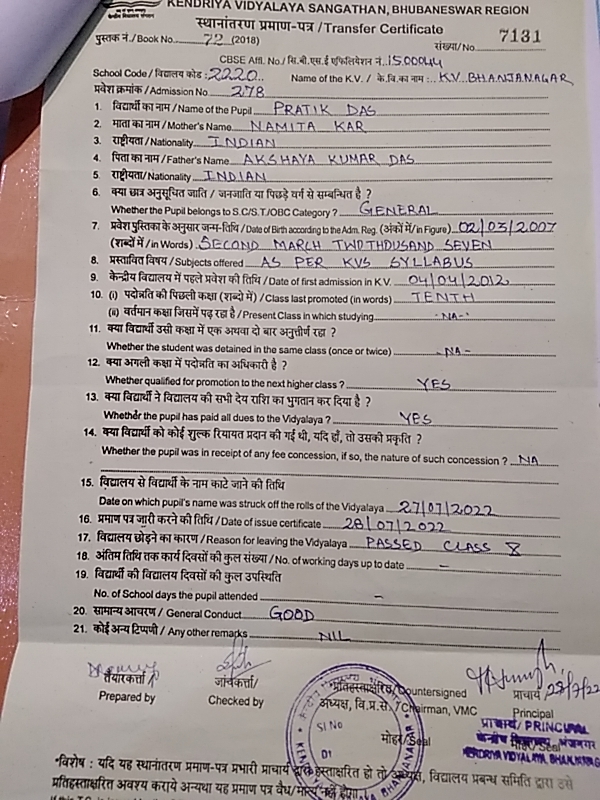 KENDRIYA VIDYALAYA SANGATHAN, BHUBANESWAR REGION
स्थानांतरण प्रमाण-पत्र /Transfer Certificate
पुस्तक नं./Book No. 72 (2018) संख्या/No. 7131
CBSE Affi. No./ सि.बी.एस.ई एफिलियेशन नं. 1500044
School Code / विद्यालय कोड : 2220 Name of the K.V. / के.वि.का नाम : K.V. BHANJANAGAR
प्रवेश क्रमांक / Admission No. 278
1. विद्यार्थी का नाम / Name of the Pupil PRATIK DAS
2. माता का नाम / Mother's Name NAMITA KAR
3. राष्ट्रीयता/Nationality INDIAN
4. पिता का नाम / Father's Name AKSHAYA KUMAR DAS
5. राष्ट्रीयता/ Nationality INDIAN
6. क्या छात्र अनुसूचित जाति / जनजाति या पिछड़े वर्ग से सम्बन्धित है ?
Whether the Pupil belongs to S.C/S.T/OBC Category ? GENERAL
7. प्रवेश पुस्तिका के अनुसार जन्म-तिथि / Date of Birth according to the Adm. Reg. (अंकों में / in Figure) 02/03/2007
(शब्दों में / in Words) SECOND MARCH TWO THOUSAND SEVEN
8. प्रस्तावित विषय / Subjects offered AS PER KVS SYLLABUS
9. केन्द्रीय विद्यालय में पहले प्रवेश की तिथि / Date of first admission in K.V. 04/04/2012
10. (i) पदोन्नति की पिछली कक्षा (शब्दो में) / Class last promoted (in words) TENTH
(ii) वर्तमान कक्षा जिसमें पढ़ रहा है / Present Class in which studying -NA-
11. क्या विद्यार्थी उसी कक्षा में एक अथवा दो बार अनुत्तीर्ण रहा ?
Whether the student was detained in the same class (once or twice) -NA-
12. क्या अगली कक्षा में पदोन्नति का अधिकारी है ?
Whether qualified for promotion to the next higher class ? YES
13. क्या विद्यार्थी ने विद्यालय की सभी देय राशि का भुगतान कर दिया है ?
Whether the pupil has paid all dues to the Vidyalaya ? YES
14. क्या विद्यार्थी को कोई शुल्क रियायत प्रदान की गई थी, यदि हाँ, तो उसकी प्रकृति ?
Whether the pupil was in receipt of any fee concession, if so, the nature of such concession ? NA
15. विद्यालय से विद्यार्थी के नाम काटे जाने की तिथि
Date on which pupil's name was struck off the rolls of the Vidyalaya 27/07/2022
16. प्रमाण पत्र जारी करने की तिथि / Date of issue certificate 28/07/2022
17. विद्यालय छोड़ने का कारण / Reason for leaving the Vidyalaya PASSED CLASS X
18. अंतिम तिथि तक कार्य दिवसों की कुल संख्या / No. of working days up to date –
19. विद्यार्थी की विद्यालय दिवसों की कुल उपस्थिति
No. of School days the pupil attended –
20. सामान्य आचरण / General Conduct GOOD
21. कोई अन्य टिप्पणी / Any other remarks NIL
तैयारकर्त्ता / जांचकर्त्ता/ प्रतिहस्ताक्षरित/Countersigned प्राचार्य 28/7/22
Prepared by Checked by अध्यक्ष, वि.प्र.से. / Chairman, VMC Principal
Sl No 01
मोहर/Seal मोहर/Seal
प्राचार्य/ PRINCIPAL
केन्द्रीय विद्यालय भंजनगर
KENDRIYA VIDYALAYA BHANJANAGAR
*विशेष : यदि यह स्थानांतरण प्रमाण-पत्र प्रभारी प्राचार्य द्वारा हस्ताक्षरित हो तो अध्यक्ष, विद्यालय प्रबन्ध समिति द्वारा उसे
प्रतिहस्ताक्षरित अवश्य कराये अन्यथा यह प्रमाण पत्र वैध/मान्य नहीं होगा।